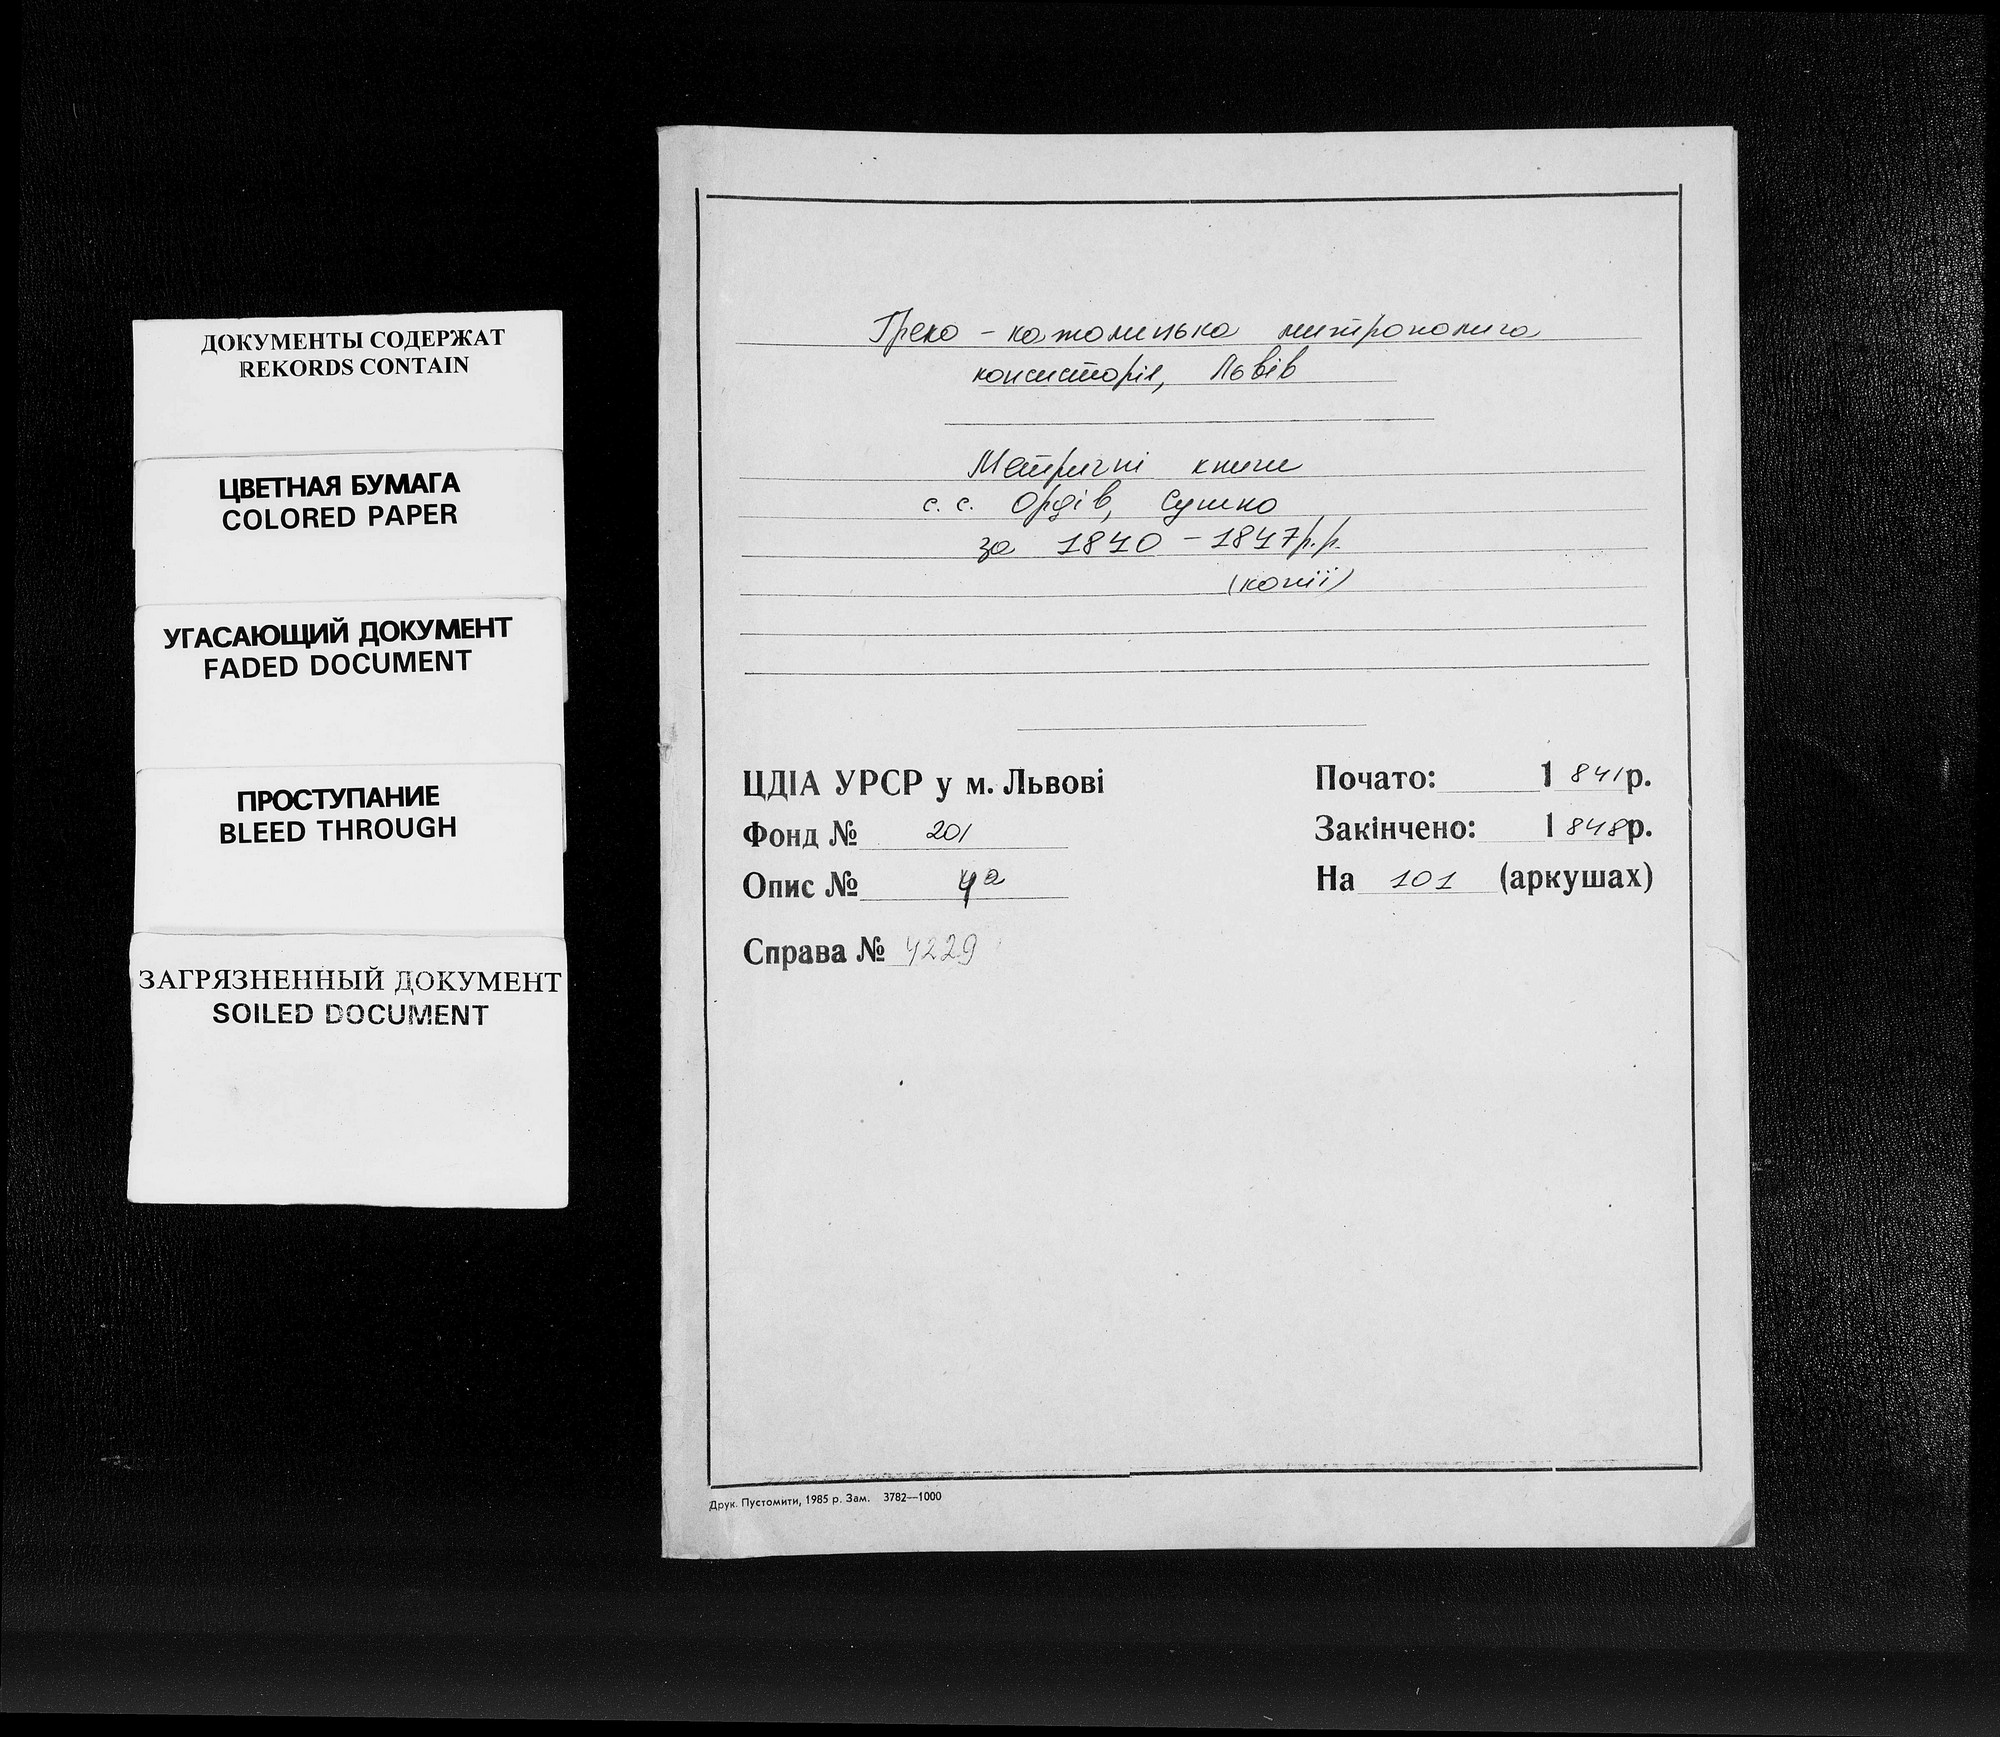 ДОКУМЕНТЫ СОДЕРЖАТ
REKORDS CONTAIN
ЦВЕТНАЯ БУМАГА
COLORED PAPER
УГАСАЮЩИЙ ДОКУМЕНТ
FADED DOCUMENT
ПРОСТУПАНИЕ
BLEED THROUGH
ЗАГРЯЗНЕННЫЙ ДОКУМЕНТ
SOILED DOCUMENT
Греко - католицька митрополича
консисторія, Львів
Метричні книги
с. с. Ордів, Сушно
за 1840 - 1847 р.р.
(копії)
ЦДІА УРСР у м. Львові
Фонд № 201
Опис № 4а
Справа № 4229
Почато: 1841 р.
Закінчено: 1848 р.
На 101 (аркушах)
Друк. Пустомити, 1985 р. Зам. 3782—1000